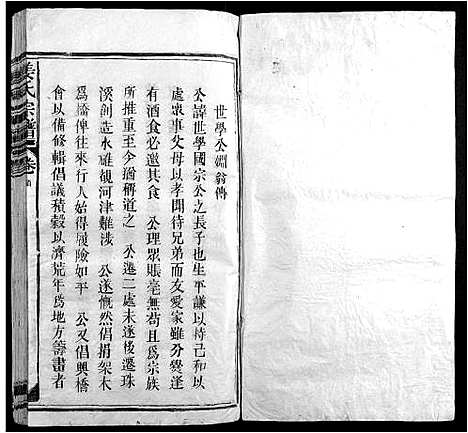 世學公淵翁傳
公諱世學國宗公之長子也生平謙以持己和以
處衆事父母以孝聞待兄弟而友愛家雖分爨逢
有酒食必邀其食　公理眾賬毫無苟且爲宗族
所推重至今猶稱道之　公遷二處未遂後遷珠
溪創造水碓硯河津難涉　公遂慨然倡捐架木
爲橋俾往來行人始得履險如平　公又倡興橋
會以備修輯倡議積穀以濟荒年爲地方籌畫者
姜氏宗譜
卷首